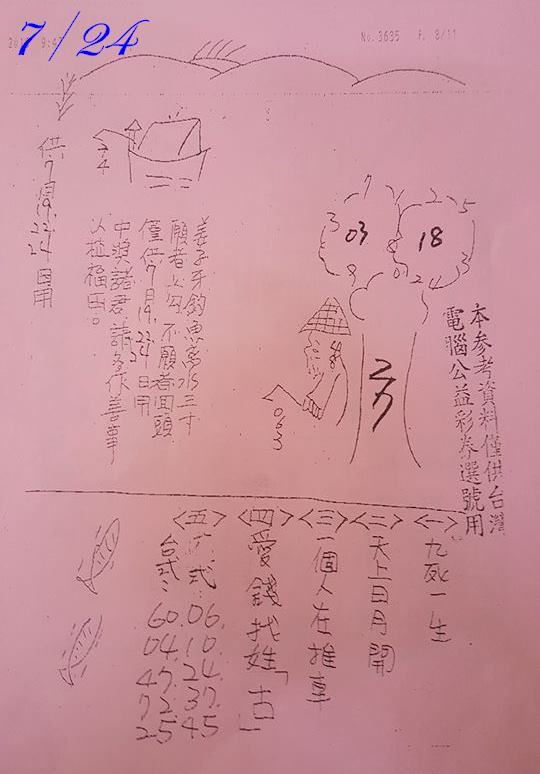 7/24
No. 3635 P. 8/11
供7月19.22.
24日用
姜子牙釣魚離水三寸
願者上勾不願者回頭
僅供7月19.22.24日用
中獎諸君請多作善事
以植福田。
03
18
27
063
本參考資料僅供台灣
電腦公益彩券選號用
<一>九死一生
<二>天上日月開
<三>一個人在推車
<四>愛錢找姓「古」
<五>六式:06.10.24.37.45
台式:60.04.47.72.25